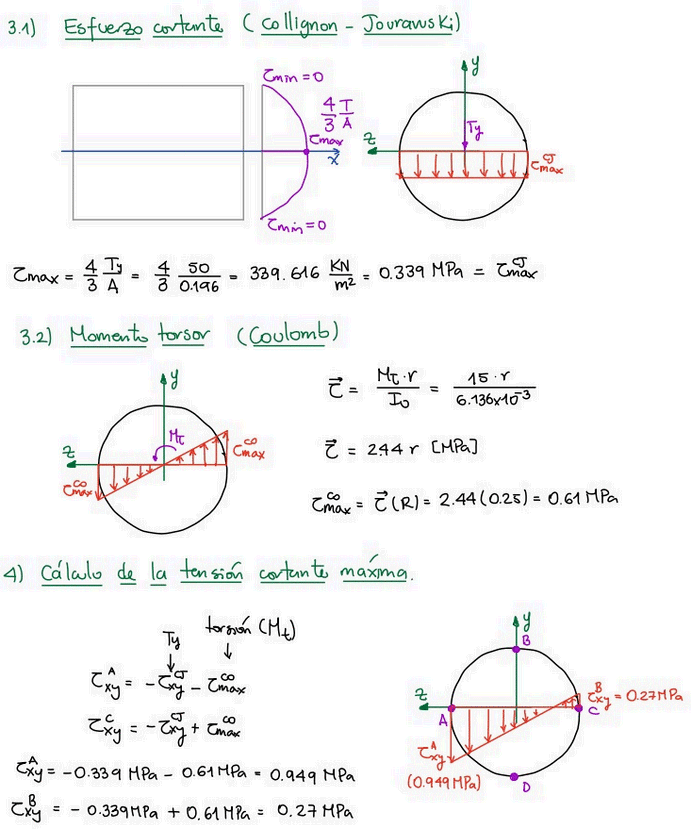 3.1) Esfuerzo cortante (Collignon - Jourawski)
τmin = 0
4/3 T/A
τmax
x
τmin = 0
y
Ty
z
τmax^CJ
τmax = 4/3 Ty/A = 4/3 50/0.196 = 339.616 KN/m² = 0.339 MPa = τmax^CJ
3.2) Momento torsor (Coulomb)
y
Mt
z
τmax^CO
τmax^CO
τ⃗ = Mt·r/I0 = 15·r/6.136x10^-3
τ⃗ = 2.44 r [MPa]
τmax^CO = τ⃗(R) = 2.44(0.25) = 0.61 MPa
4) Cálculo de la tensión cortante máxima.
Ty torsión (Mt)
τxy^A = -τxy^CJ - τmax^CO
τxy^C = -τxy^CJ + τmax^CO
τxy^A = -0.339 MPa - 0.61 MPa = 0.949 MPa
τxy^B = - 0.339MPa + 0.61 MPa = 0.27 MPa
y
B
z
τxy^B = 0.27 MPa
A
C
τxy^A
(0.949 MPa)
D